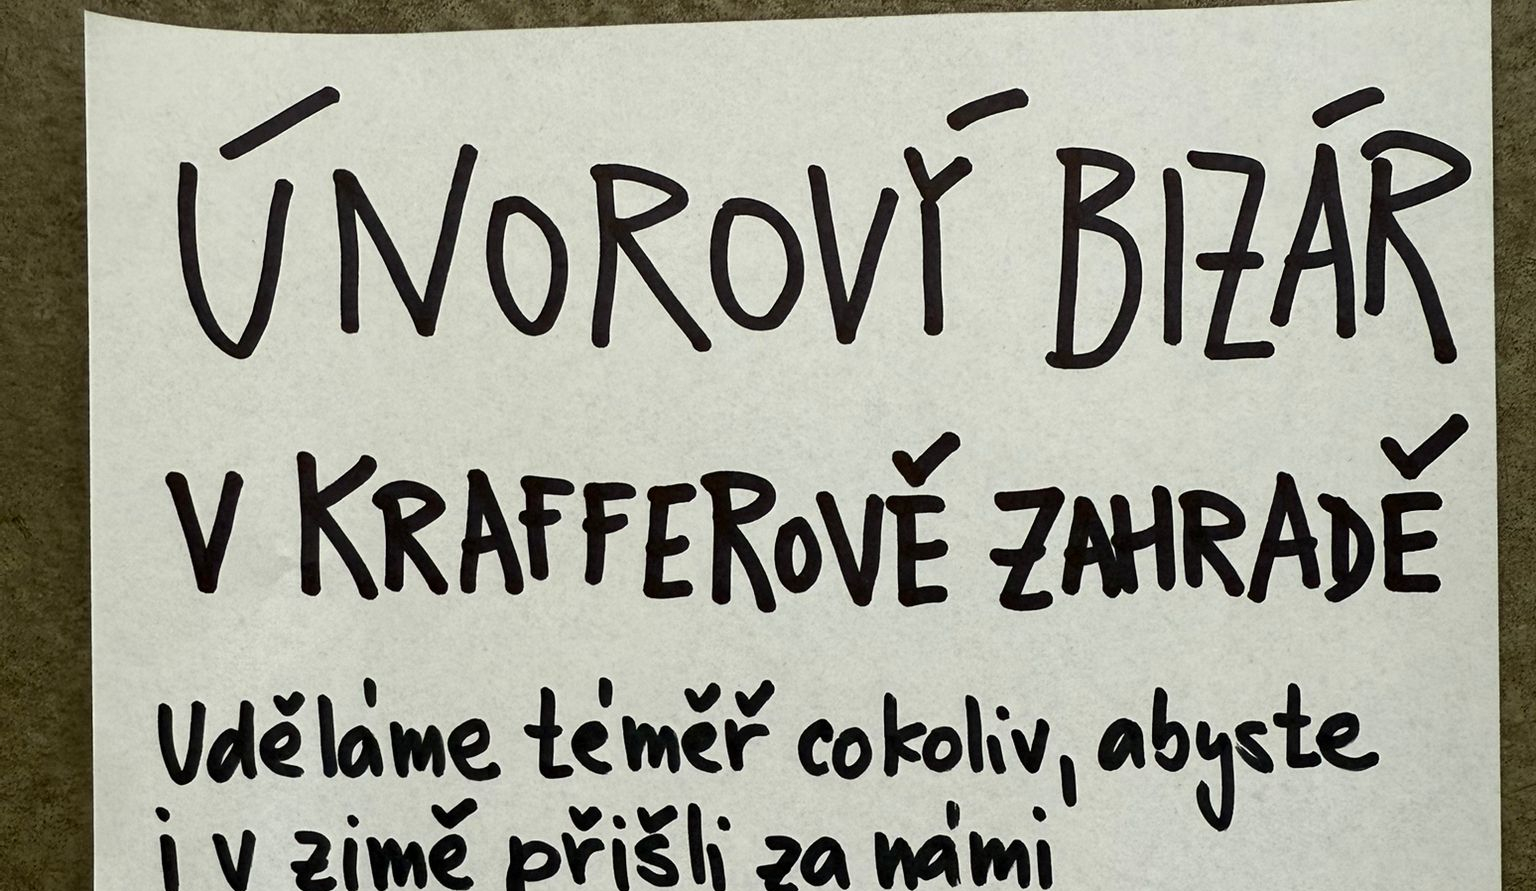 ÚNOROVÝ BIZÁR
V KRAFFEROVĚ ZAHRADĚ
Uděláme téměř cokoliv, abyste
i v zimě přišli za námi